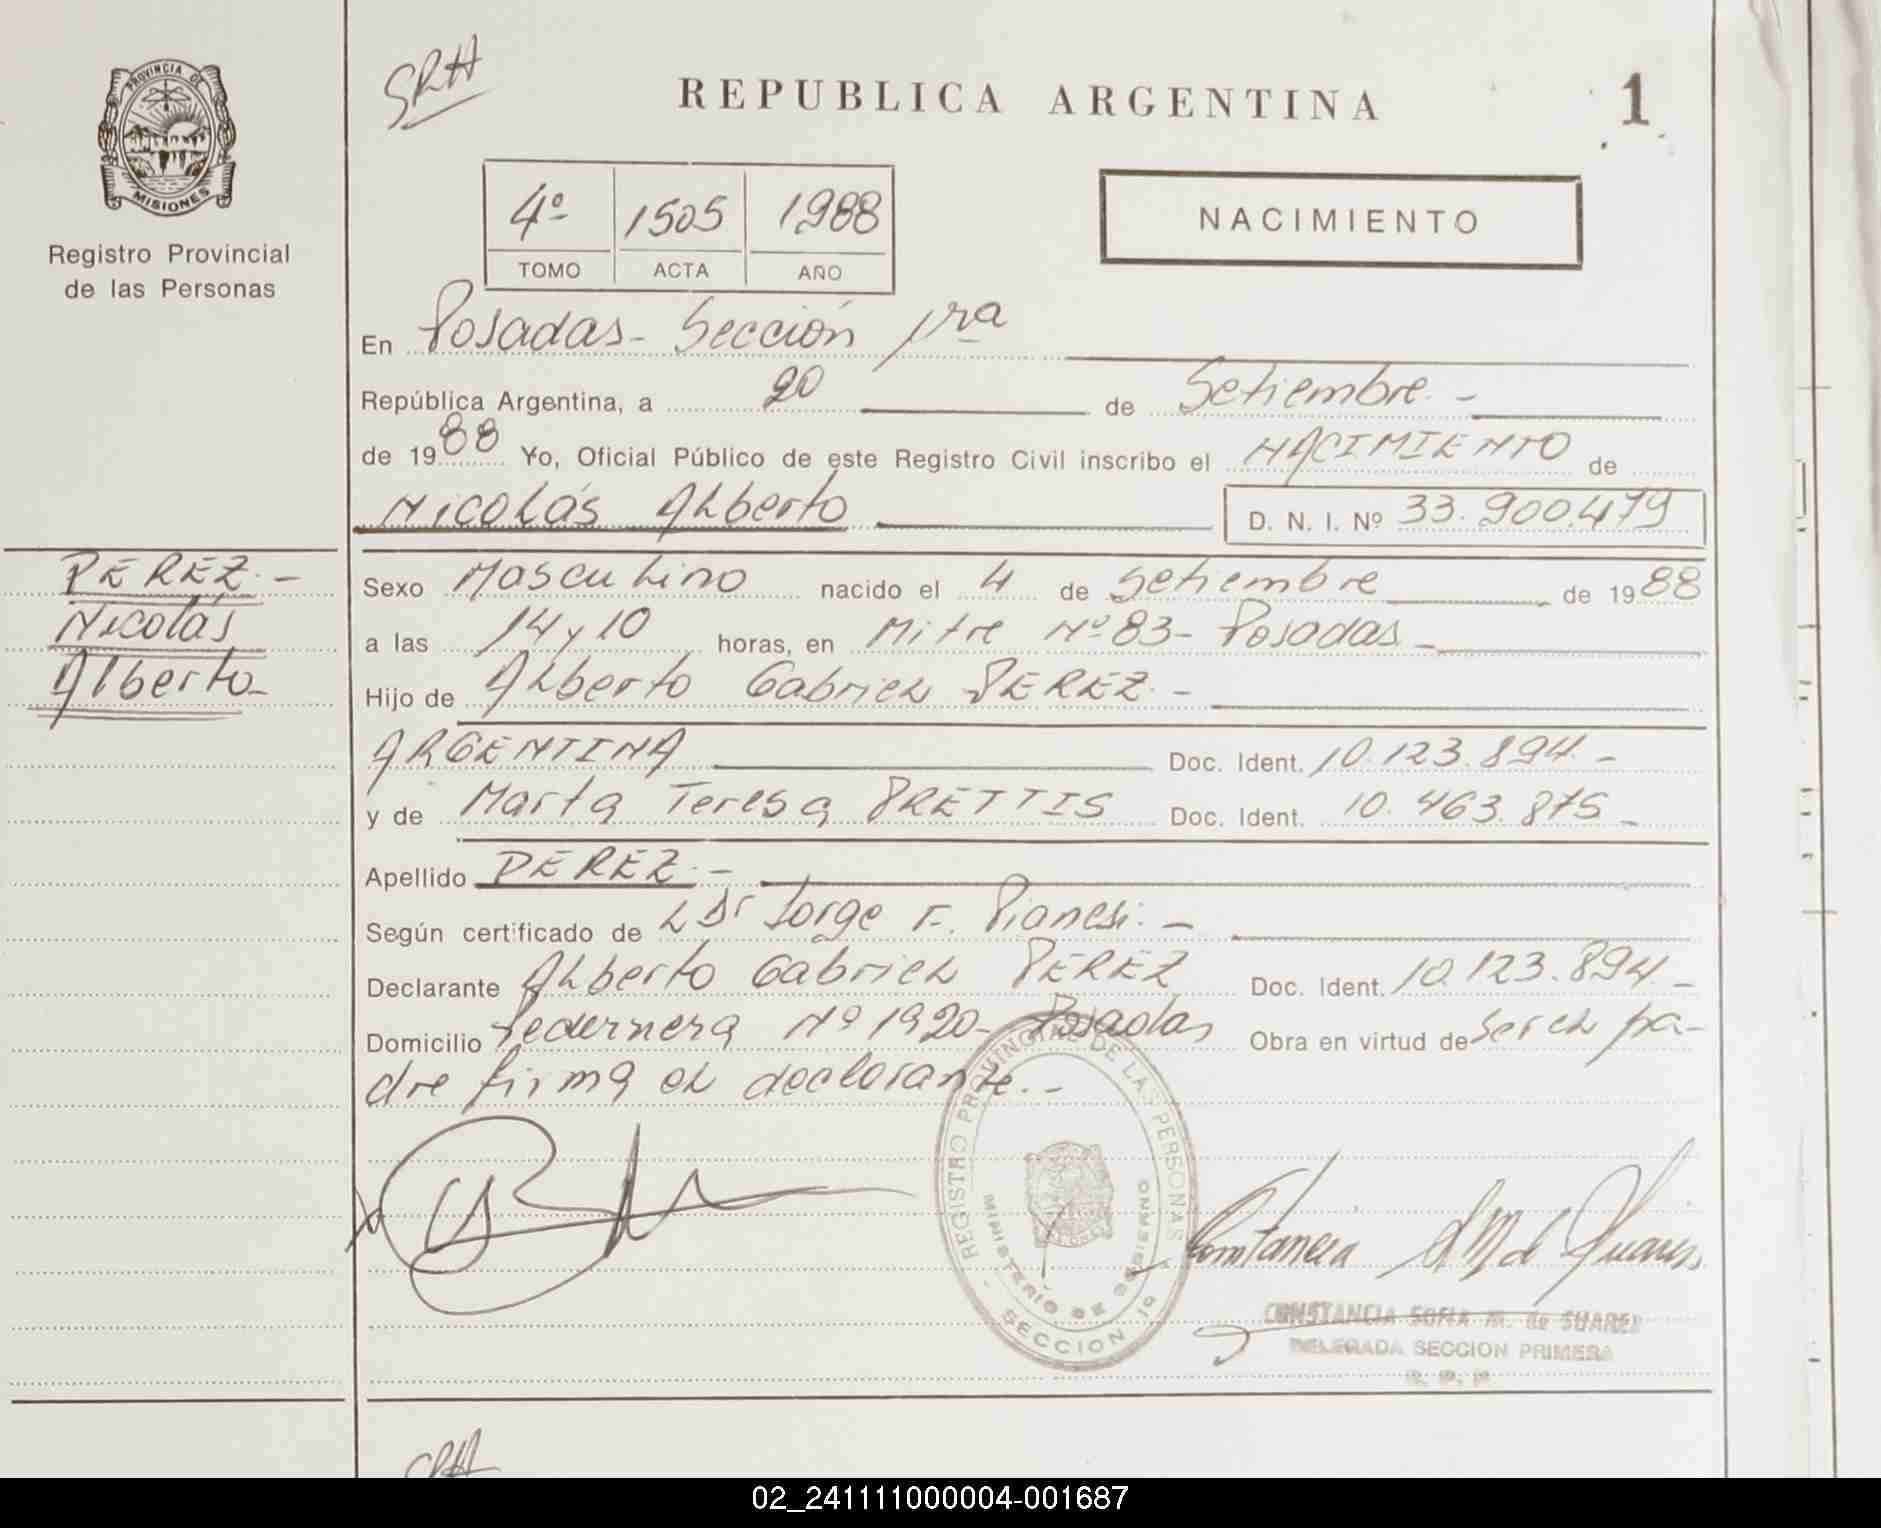 PROVINCIA DE
MISIONES
Registro Provincial
de las Personas
SRH
REPUBLICA ARGENTINA
1
4º 1505 1988
TOMO ACTA AÑO
NACIMIENTO
En Posadas - Sección 1ra
República Argentina, a 20 de Setiembre. -
de 1988 Yo, Oficial Público de este Registro Civil inscribo el NACIMIENTO de
Nicolás Alberto D. N. I. Nº 33.900.479
PEREZ. -
Nicolás
Alberto -
Sexo Masculino nacido el 4 de Setiembre de 1988
a las 14 y 10 horas, en Mitre Nº 83 - Posadas -
Hijo de Alberto Gabriel PEREZ. -
ARGENTINA Doc. Ident. 10.123.894. -
y de Marta Teresa PRETTIS Doc. Ident. 10.463.875 -
Apellido PEREZ. -
Según certificado de L Dr Jorge F. Pianesi. -
Declarante Alberto Gabriel PEREZ Doc. Ident. 10.123.894. -
Domicilio Pedernera Nº 1920 - Posadas Obra en virtud de ser el pa-
dre firma el declarante. -
REGISTRO PROVINCIAL DE LAS PERSONAS
MINISTERIO DE GOBIERNO
SECCION 1a
CONSTANCIA SOFIA M. de SUAREZ
DELEGADA SECCION PRIMERA
R. P. P.
SRH
02_241111000004-001687